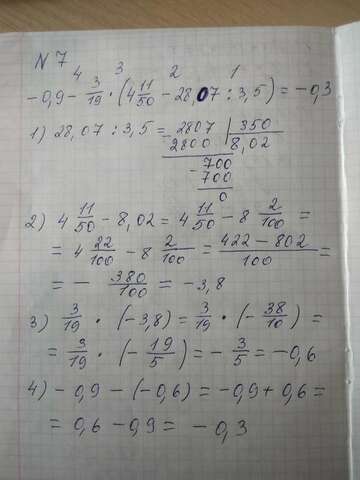 N 7
4 3 2 1
-0,9 - 3/19 · (4 11/50 - 28,07 : 3,5) = -0,3
1) 28,07 : 3,5 = 2807 | 350
- 2800 | 8,02
- 700
700
0
2) 4 11/50 - 8,02 = 4 11/50 - 8 2/100 =
= 4 22/100 - 8 2/100 = (422 - 802)/100 =
= - 380/100 = -3,8
3) 3/19 · (-3,8) = 3/19 · (- 38/10) =
= 3/19 · (- 19/5) = - 3/5 = -0,6
4) -0,9 - (-0,6) = -0,9 + 0,6 =
= 0,6 - 0,9 = -0,3